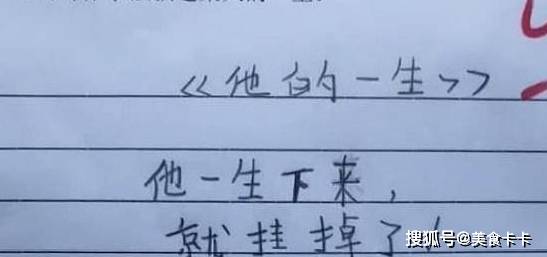 《他的一生》
他一生下来，
就挂掉了
搜狐号@美食卡卡